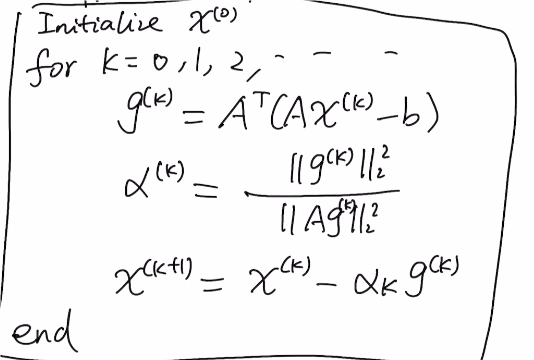 Initialize x^(0)
for k = 0, 1, 2, - - -
g^(k) = A^T(Ax^(k) - b)
α^(k) = ||g^(k)||_2^2 / ||Ag^(k)||_2^2
x^(k+1) = x^(k) - α_k g^(k)
end